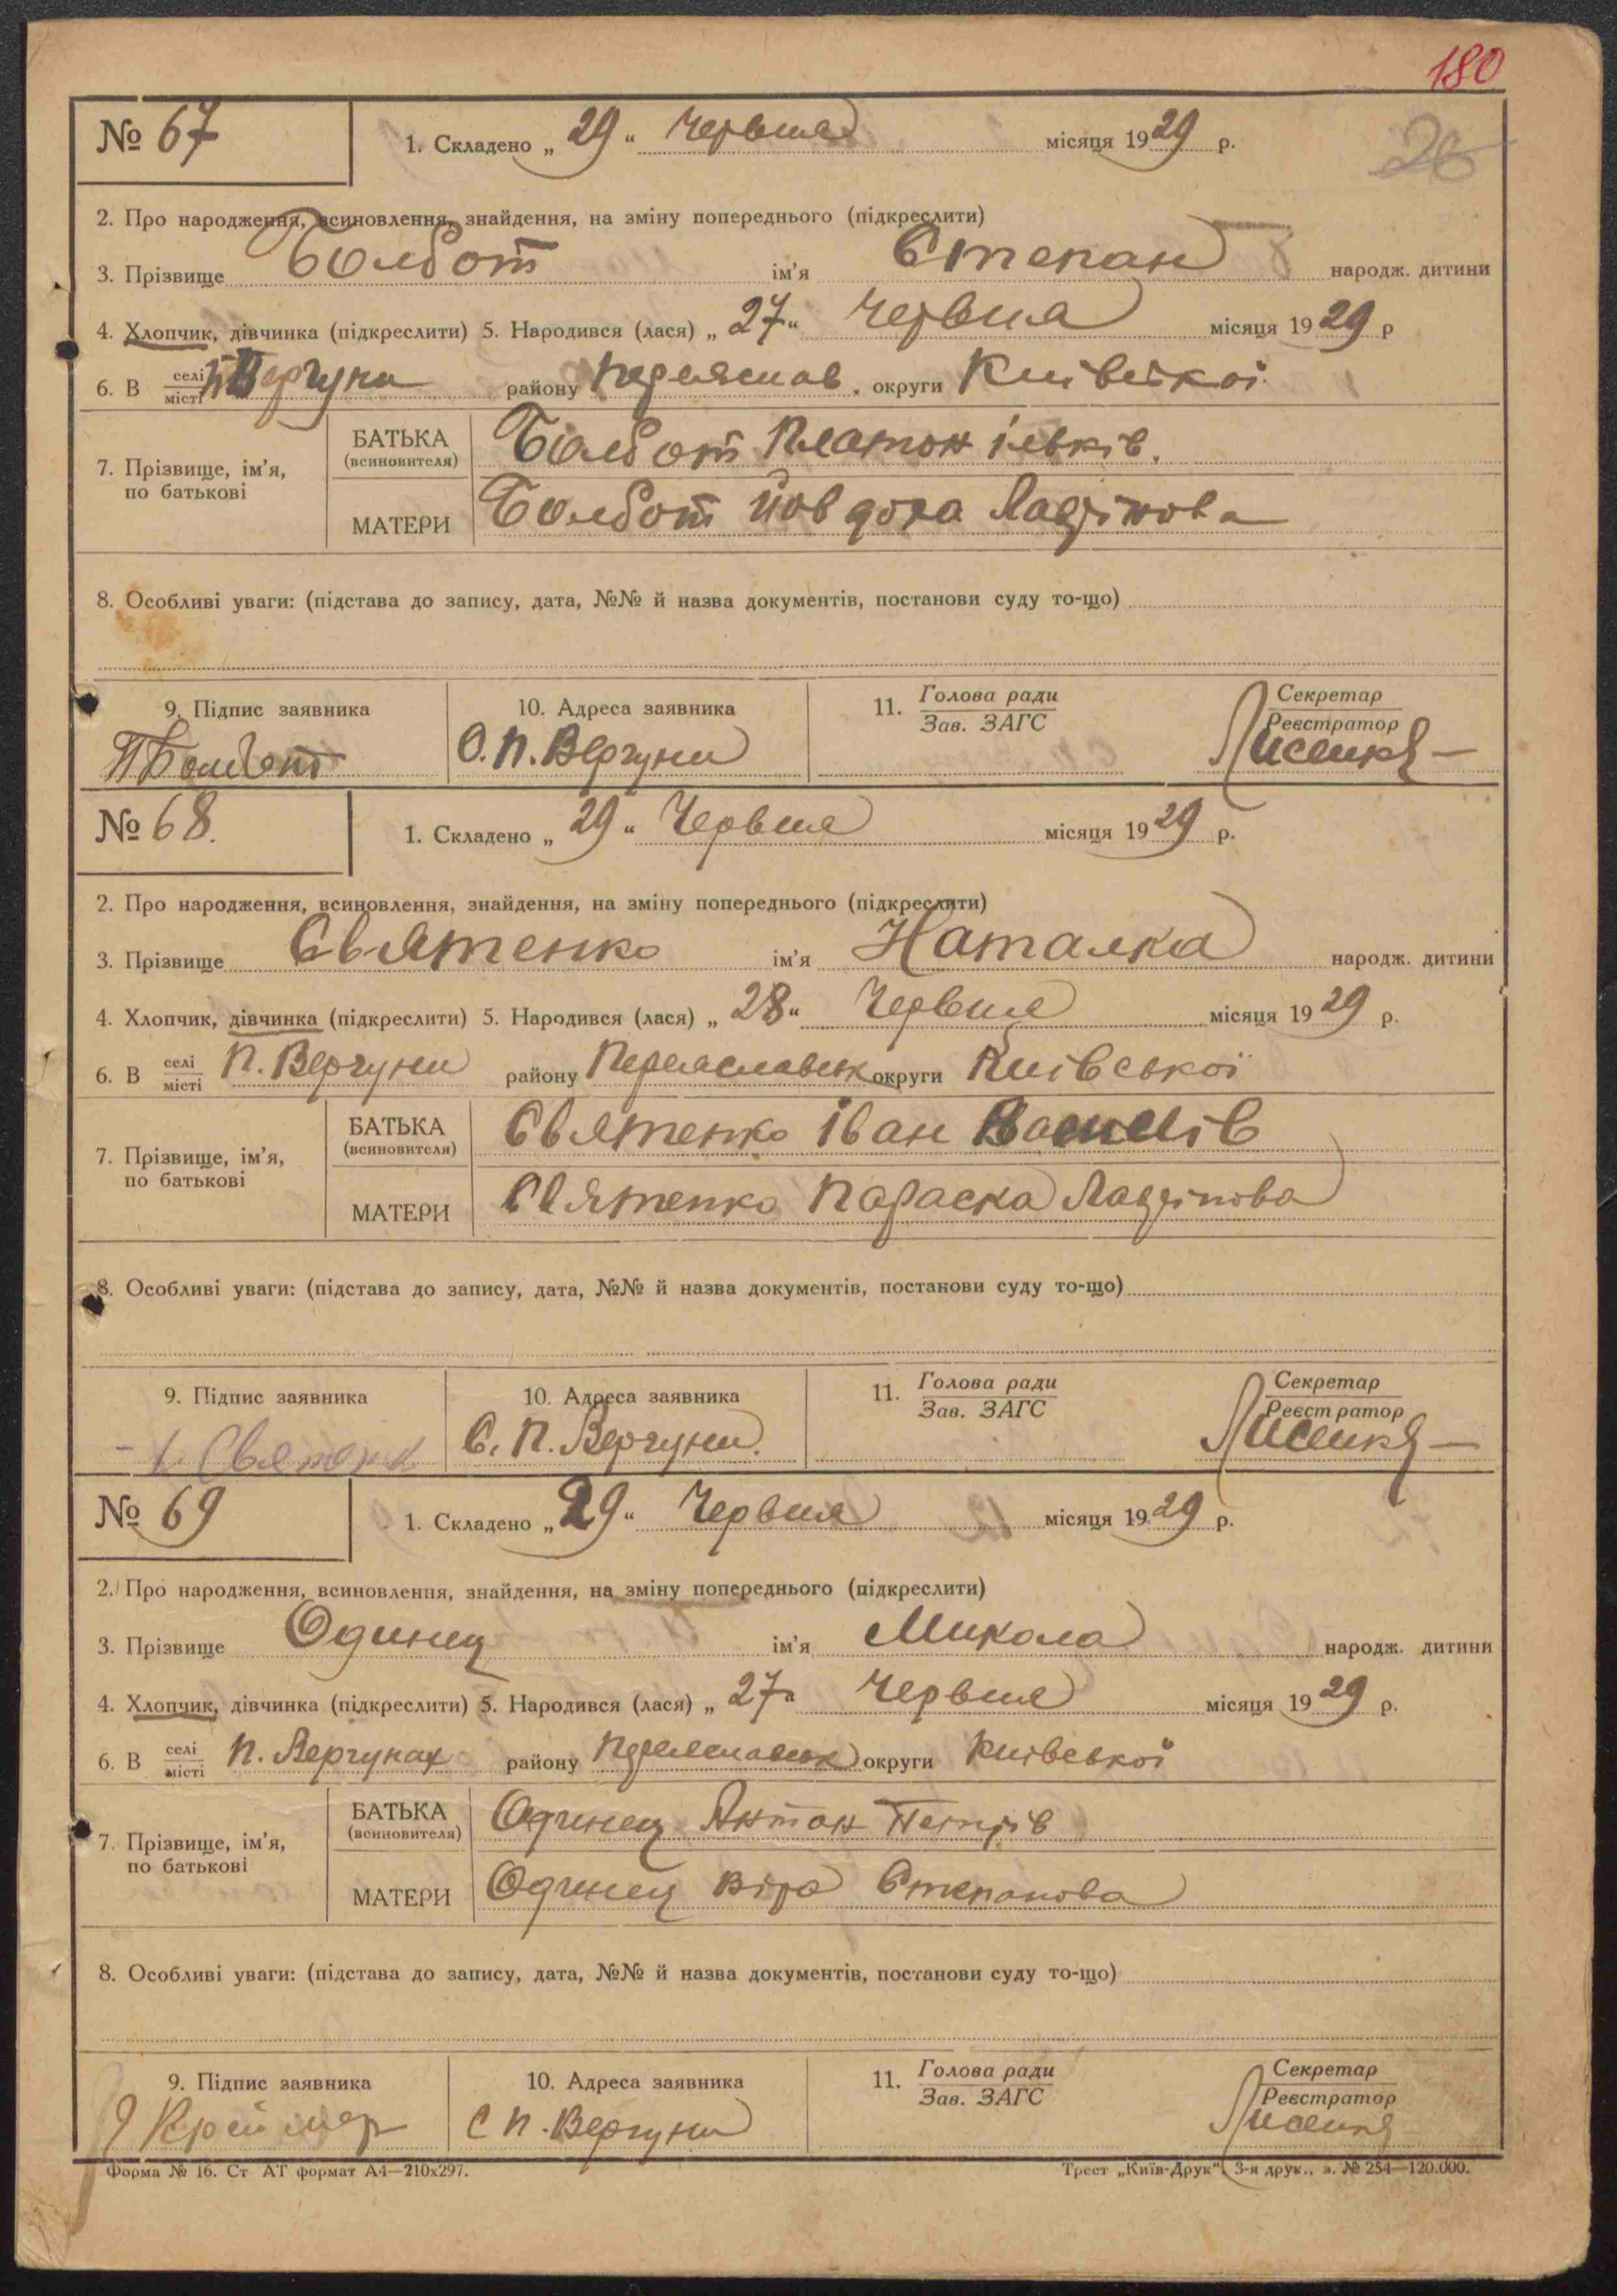 180
№ 67 1. Складено „ 29 “ Червня місяця 1929 р.
26
2. Про народження, всиновлення, знайдення, на зміну попереднього (підкреслити)
3. Прізвище Болбот ім'я Степан народж. дитини
4. Хлопчик, дівчинка (підкреслити) 5. Народився (лася) „ 27 “ Червня місяця 1929 р
6. В селі/місті П Вергуни району Переяслав. округи Київської
7. Прізвище, ім'я, по батькові
БАТЬКА (всиновителя) Болбот Платон ільків.
МАТЕРИ Болбот Йовдоха Лаврінова
8. Особливі уваги: (підстава до запису, дата, №№ й назва документів, постанови суду то-що)
9. Підпис заявника 10. Адреса заявника 11. Голова ради/Зав. ЗАГС Секретар/Реєстратор
П Болбот С. П. Вергуни Лисенко
№ 68. 1. Складено „ 29 “ Червня місяця 1929 р.
2. Про народження, всиновлення, знайдення, на зміну попереднього (підкреслити)
3. Прізвище Святенко ім'я Наталка народж. дитини
4. Хлопчик, дівчинка (підкреслити) 5. Народився (лася) „ 28 “ Червня місяця 1929 р.
6. В селі/місті П. Вергуни району Переяславськ округи Київської
7. Прізвище, ім'я, по батькові
БАТЬКА (всиновителя) Святенко Іван Василів
МАТЕРИ Святенко Параска Лаврінова
8. Особливі уваги: (підстава до запису, дата, №№ й назва документів, постанови суду то-що)
9. Підпис заявника 10. Адреса заявника 11. Голова ради/Зав. ЗАГС Секретар/Реєстратор
Святенк С. П. Вергуни. Лисенко
№ 69 1. Складено „ 29 “ Червня місяця 1929 р.
2. Про народження, всиновлення, знайдення, на зміну попереднього (підкреслити)
3. Прізвище Одинец ім'я Микола народж. дитини
4. Хлопчик, дівчинка (підкреслити) 5. Народився (лася) „ 27 “ Червня місяця 1929 р.
6. В селі/місті П. Вергунах району Переяславськ округи Київської
7. Прізвище, ім'я, по батькові
БАТЬКА (всиновителя) Одинец Антон Петрів
МАТЕРИ Одинец Віра Степанова
8. Особливі уваги: (підстава до запису, дата, №№ й назва документів, постанови суду то-що)
9. Підпис заявника 10. Адреса заявника 11. Голова ради/Зав. ЗАГС Секретар/Реєстратор
С П. Вергуни Лисенко
Форма № 16. Ст АТ формат А4—210х297. Трест „Київ-Друк“, 3-я друк., з. № 254—120.000.